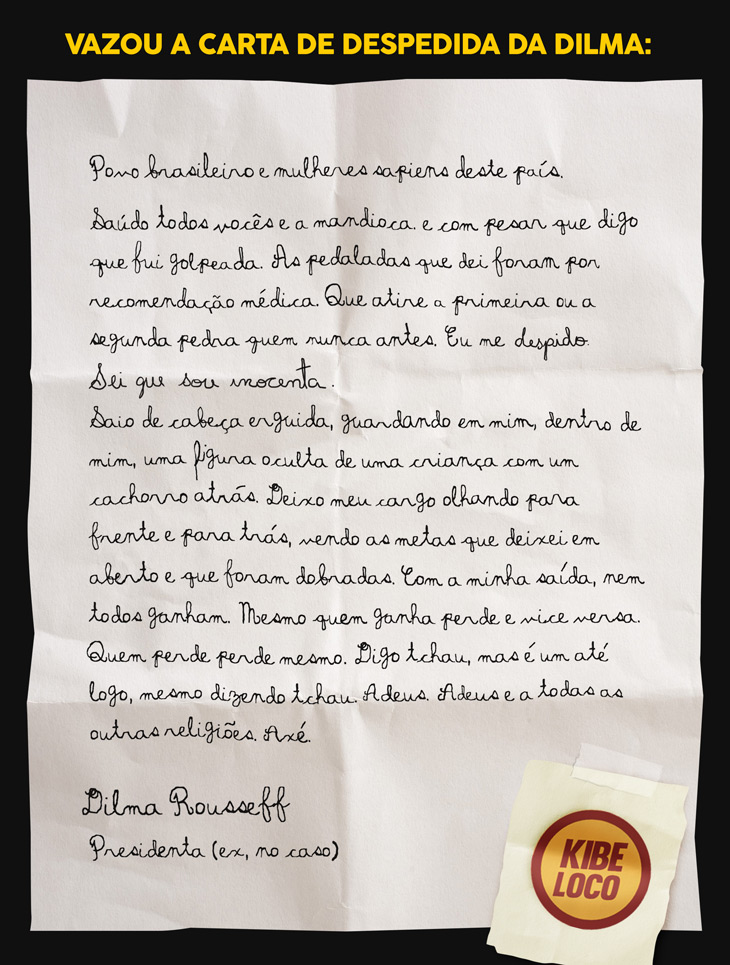 VAZOU A CARTA DE DESPEDIDA DA DILMA:
Povo brasileiro e mulheres sapiens deste país.
Saúdo todos vocês e a mandioca. e com pesar que digo
que fui golpeada. As pedaladas que dei foram por
recomendação médica. Que atire a primeira ou a
segunda pedra quem nunca antes. Eu me despido.
Sei que sou inocenta.
Saio de cabeça erguida, guardando em mim, dentro de
mim, uma figura oculta de uma criança com um
cachorro atrás. Deixo meu cargo olhando para
frente e para trás, vendo as metas que deixei em
aberto e que foram dobradas. Com a minha saída, nem
todos ganham. Mesmo quem ganha perde e vice versa.
Quem perde perde mesmo. Digo tchau, mas é um até
logo, mesmo dizendo tchau. Adeus. Adeus e a todas as
outras religiões. Axé.
Dilma Rousseff
Presidenta (ex, no caso)
KIBE
LOCO